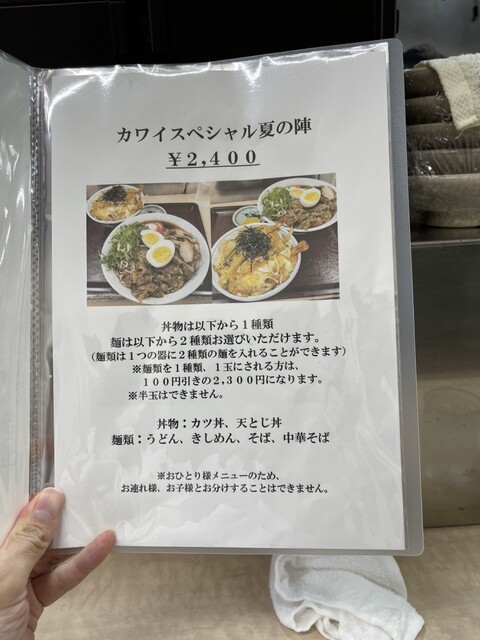 カワイスペシャル夏の陣
￥２,４００
丼物は以下から１種類
麺は以下から２種類お選びいただけます。
（麺類は１つの器に２種類の麺を入れることができます）
※麺類を１種類、１玉にされる方は、
１００円引きの２,３００円になります。
※半玉はできません。
丼物：カツ丼、天とじ丼
麺類：うどん、きしめん、そば、中華そば
※おひとり様メニューのため、
お連れ様、お子様とお分けすることはできません。